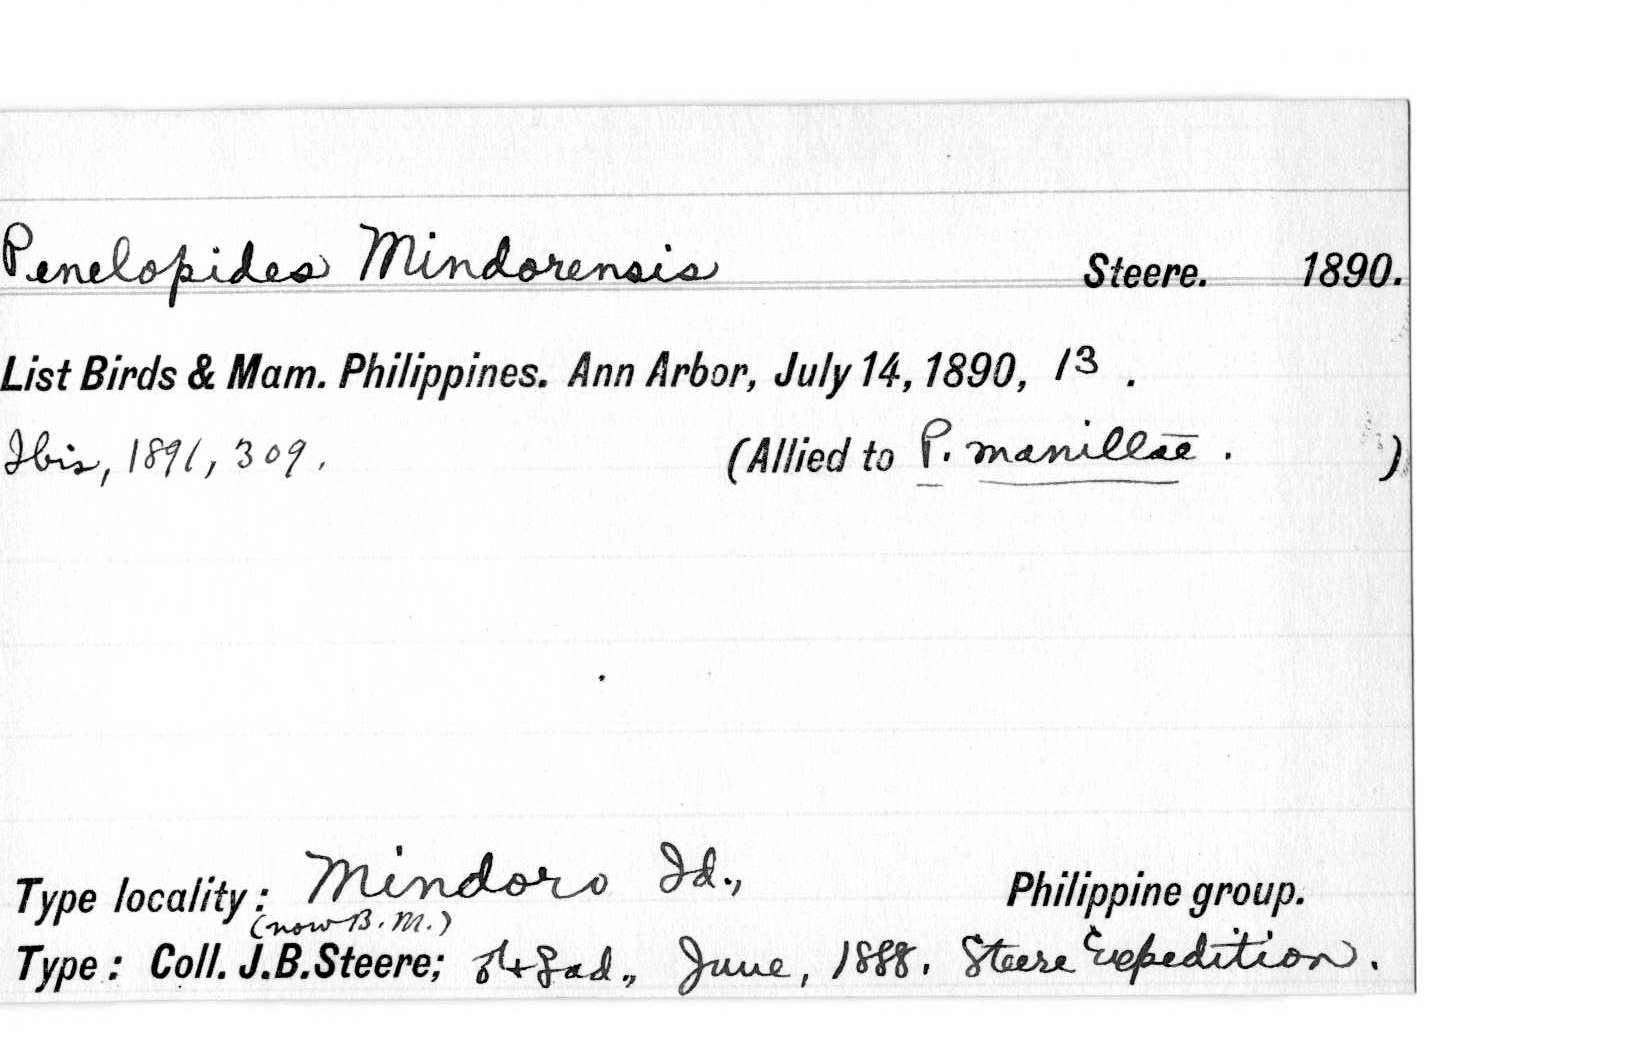 Penelopides Mindorensis Steere. 1890.
List Birds & Mam. Philippines. Ann Arbor, July 14, 1890, 13 .
Ibis, 1891, 309. (Allied to P. manillae . )
Type locality: Mindoro Id., Philippine group.
(now B.M.)
Type: Coll. J.B.Steere; ♂+♀ad., June, 1888. Steere Expedition.